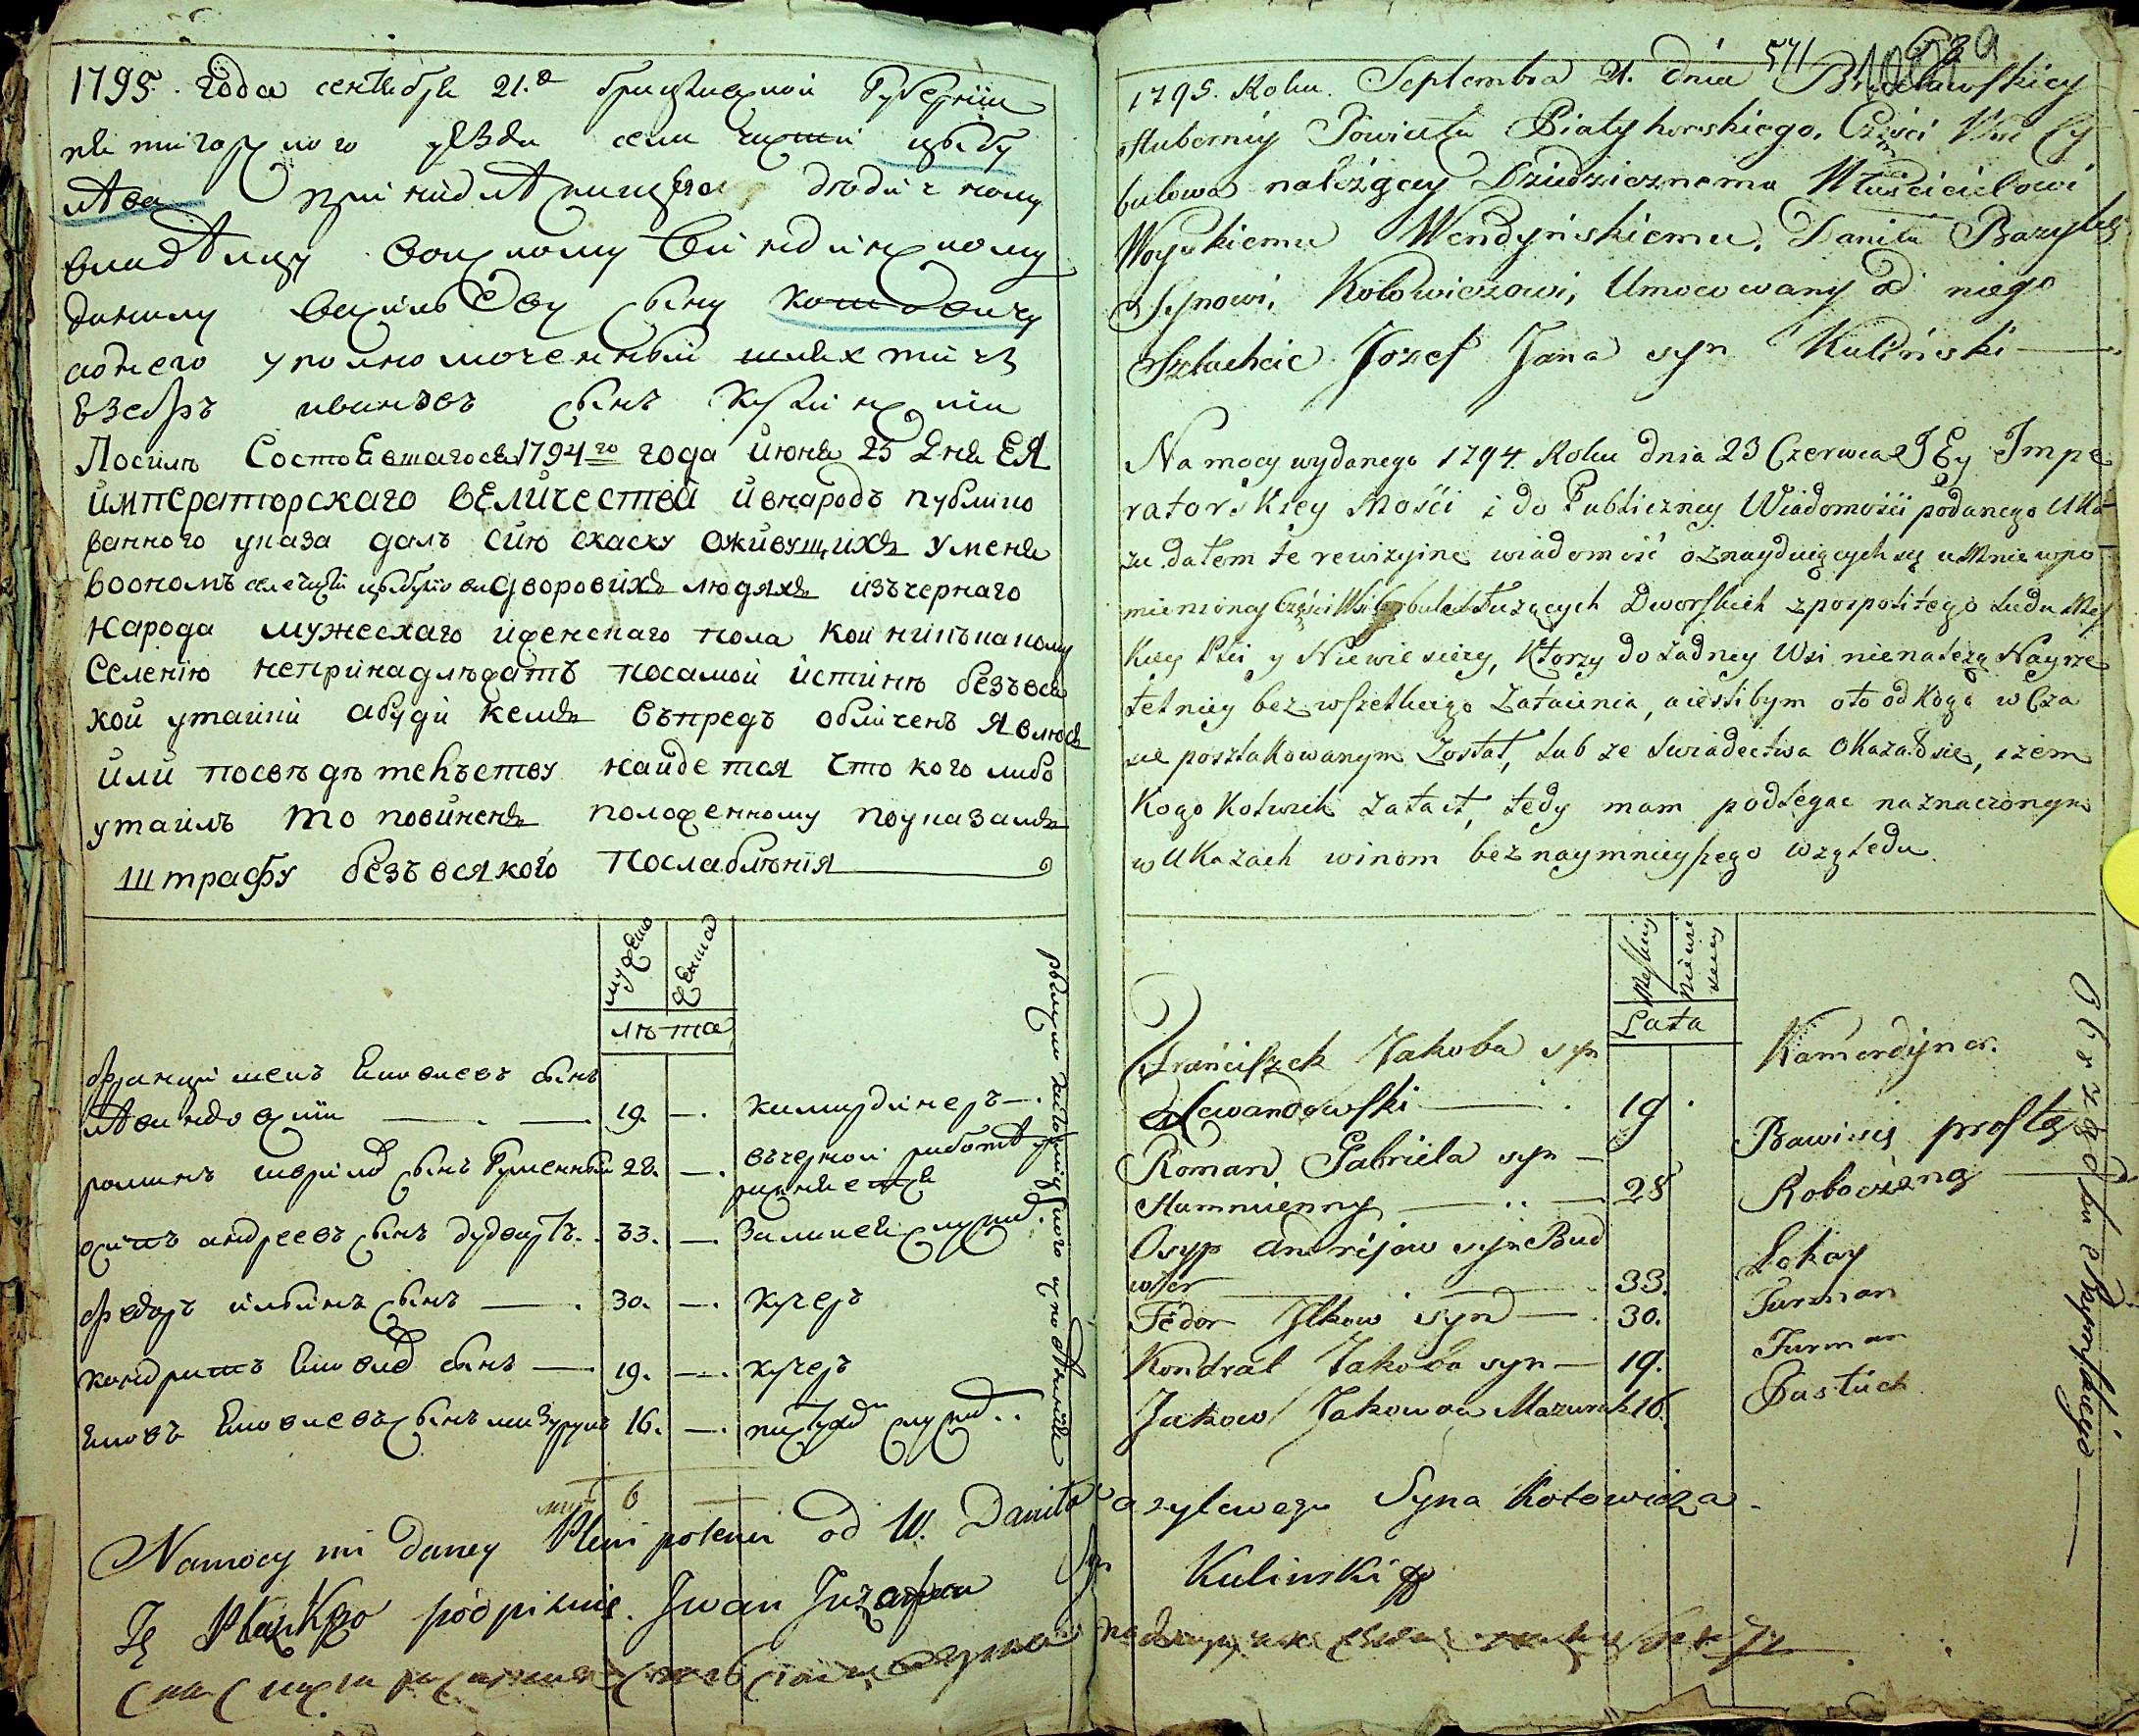 1795. года сентября 21.г брацлавской Губернiи
пятигорского уезда села части цыбу
лева принадлежащего дедичному
владельцу войскому вендинскому
данилу васильеву сыну котовичу
аотнего уполномоченный шляхтичъ
езефъ ивановъ сынъ кулинскiи
Посилѣ Состоявшагося 1794го года июня 23 Дня ЕЯ
императорскаго величества ивнародъ публико
ванного указа далъ сию скаску оживущихъ уменя
воономъ селе части цыбулеве дворовихъ людяхъ изъчернаго
народа мужескаго иженскаго пола кои никъпакому
Селенiю непринадлѣжатъ посамой истинѣ безъвся
кой утайки абуди кемъ въпредъ обличенъ явлюсь
или посвѣдѣтелъству найдется что кого либо
утаилъ то повиненъ положенному поуказамъ
штрафу безъвсякого послаблѣнiя
мужеска женска
лѣта
францишекъ Яковлевъ сынъ
левандовскiи 19. —. камардинеръ—.
романъ гаврилов сынъ Гуменный 28. —. въчерной работе упра
жняется
осипъ андреевъ сынъ будвасеръ. 33. —. Залакея служит.
федоръ ильинъ сынъ —. 30. —. кучеръ
кондратъ Яковлев сынъ — 19. —. кучеръ
Яковъ Яковлевъ сынъ мазурукъ 16. —. пастухом служит..
6 —
Namocy mi daney Pleni potencii od W. Daniła
Ję Ptaskgo podpisuię. Jwan Juzafow

571
1795. Roku. Septembra 21. dnia Bracławskiey
Huberniy Powiatu Piatyhorskiego, Części Wsi Cy
bulowa należącey Dziedzicznemu Właścicielowi
Woyskiemu Wendyńskiemu, Daniłu Bazyley
Synowi, Kotowiczowi, Umocowany od niego
Szlachcic Jozef Jana syn Kuliński
Na mocy wydanego 1794. Roku dnia 23 Czerwca JEy Impe
ratorskiey Mości i do Publiczney Wiadomości podanego Uka
zu dałem te rewizyine wiadomość oznayduiących się u Mnie wpo
mienioney Części Wsi Cybulewa słuzących Dworskich zpospolitego Ludu Męs
kiey Płci y Niewiesciey, Ktorzy do żadney Wsi nienależą Nayrze
telniey bez wszelkiego Zataienia, aiesłibym oto od Kogo w Cza
sie poszlakowanym Został, lub ze swiadectwa Okazało sie, iżem
Kogo Kolwiek zataił, tedy mam podlegac naznaczonym
w Ukazach winom beznaymnieyszego względu.
Męskiey Niewiesciey
Lata
Franciszek Jakoba syn Kamerdyner.
Lewandowski — 19.
Roman Gabriela syn — Bawi się prostą
Hummienny — 28 Robocizną
Osyp Andrijow syn Bud
wser — 33. Lokay
Fedor Jlkow syn — 30. Furman
Kondrat Jakoba syn — 19. Furman
Jakow Jakowa Mazuruk 16. Pastuch
azylewego Syna Kotowicza.
Syn Kulinski